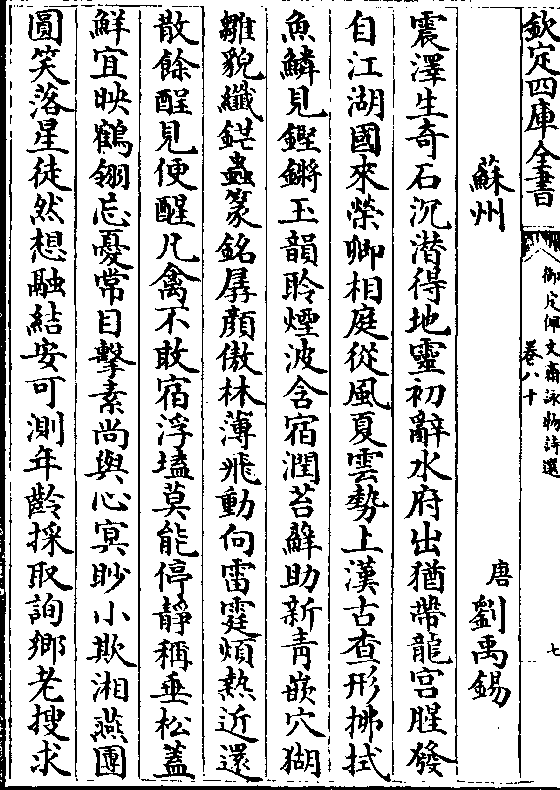 欽定四庫全書
御定佩文齋詠物詩選
卷八十
七
蘇州
唐劉禹錫
震澤生奇石沉潛得地靈初辭水府出猶帶龍宮腥發
自江湖國來榮卿相庭從風夏雲勢上漢古查形拂拭
魚鱗見鏗鏘玉韻聆煙波含宿潤苔蘚助新青嵌穴猢
雛貌纖鋩蟲篆銘孱顏傲林薄飛動向雷霆煩熱近還
散餘酲見便醒凡禽不敢宿浮壒莫能停靜稱垂松蓋
鮮宜映鶴翎忘憂常目擊素尚與心冥眇小欺湘燕團
圓笑落星徒然想融結安可測年齡採取詢鄉老搜求